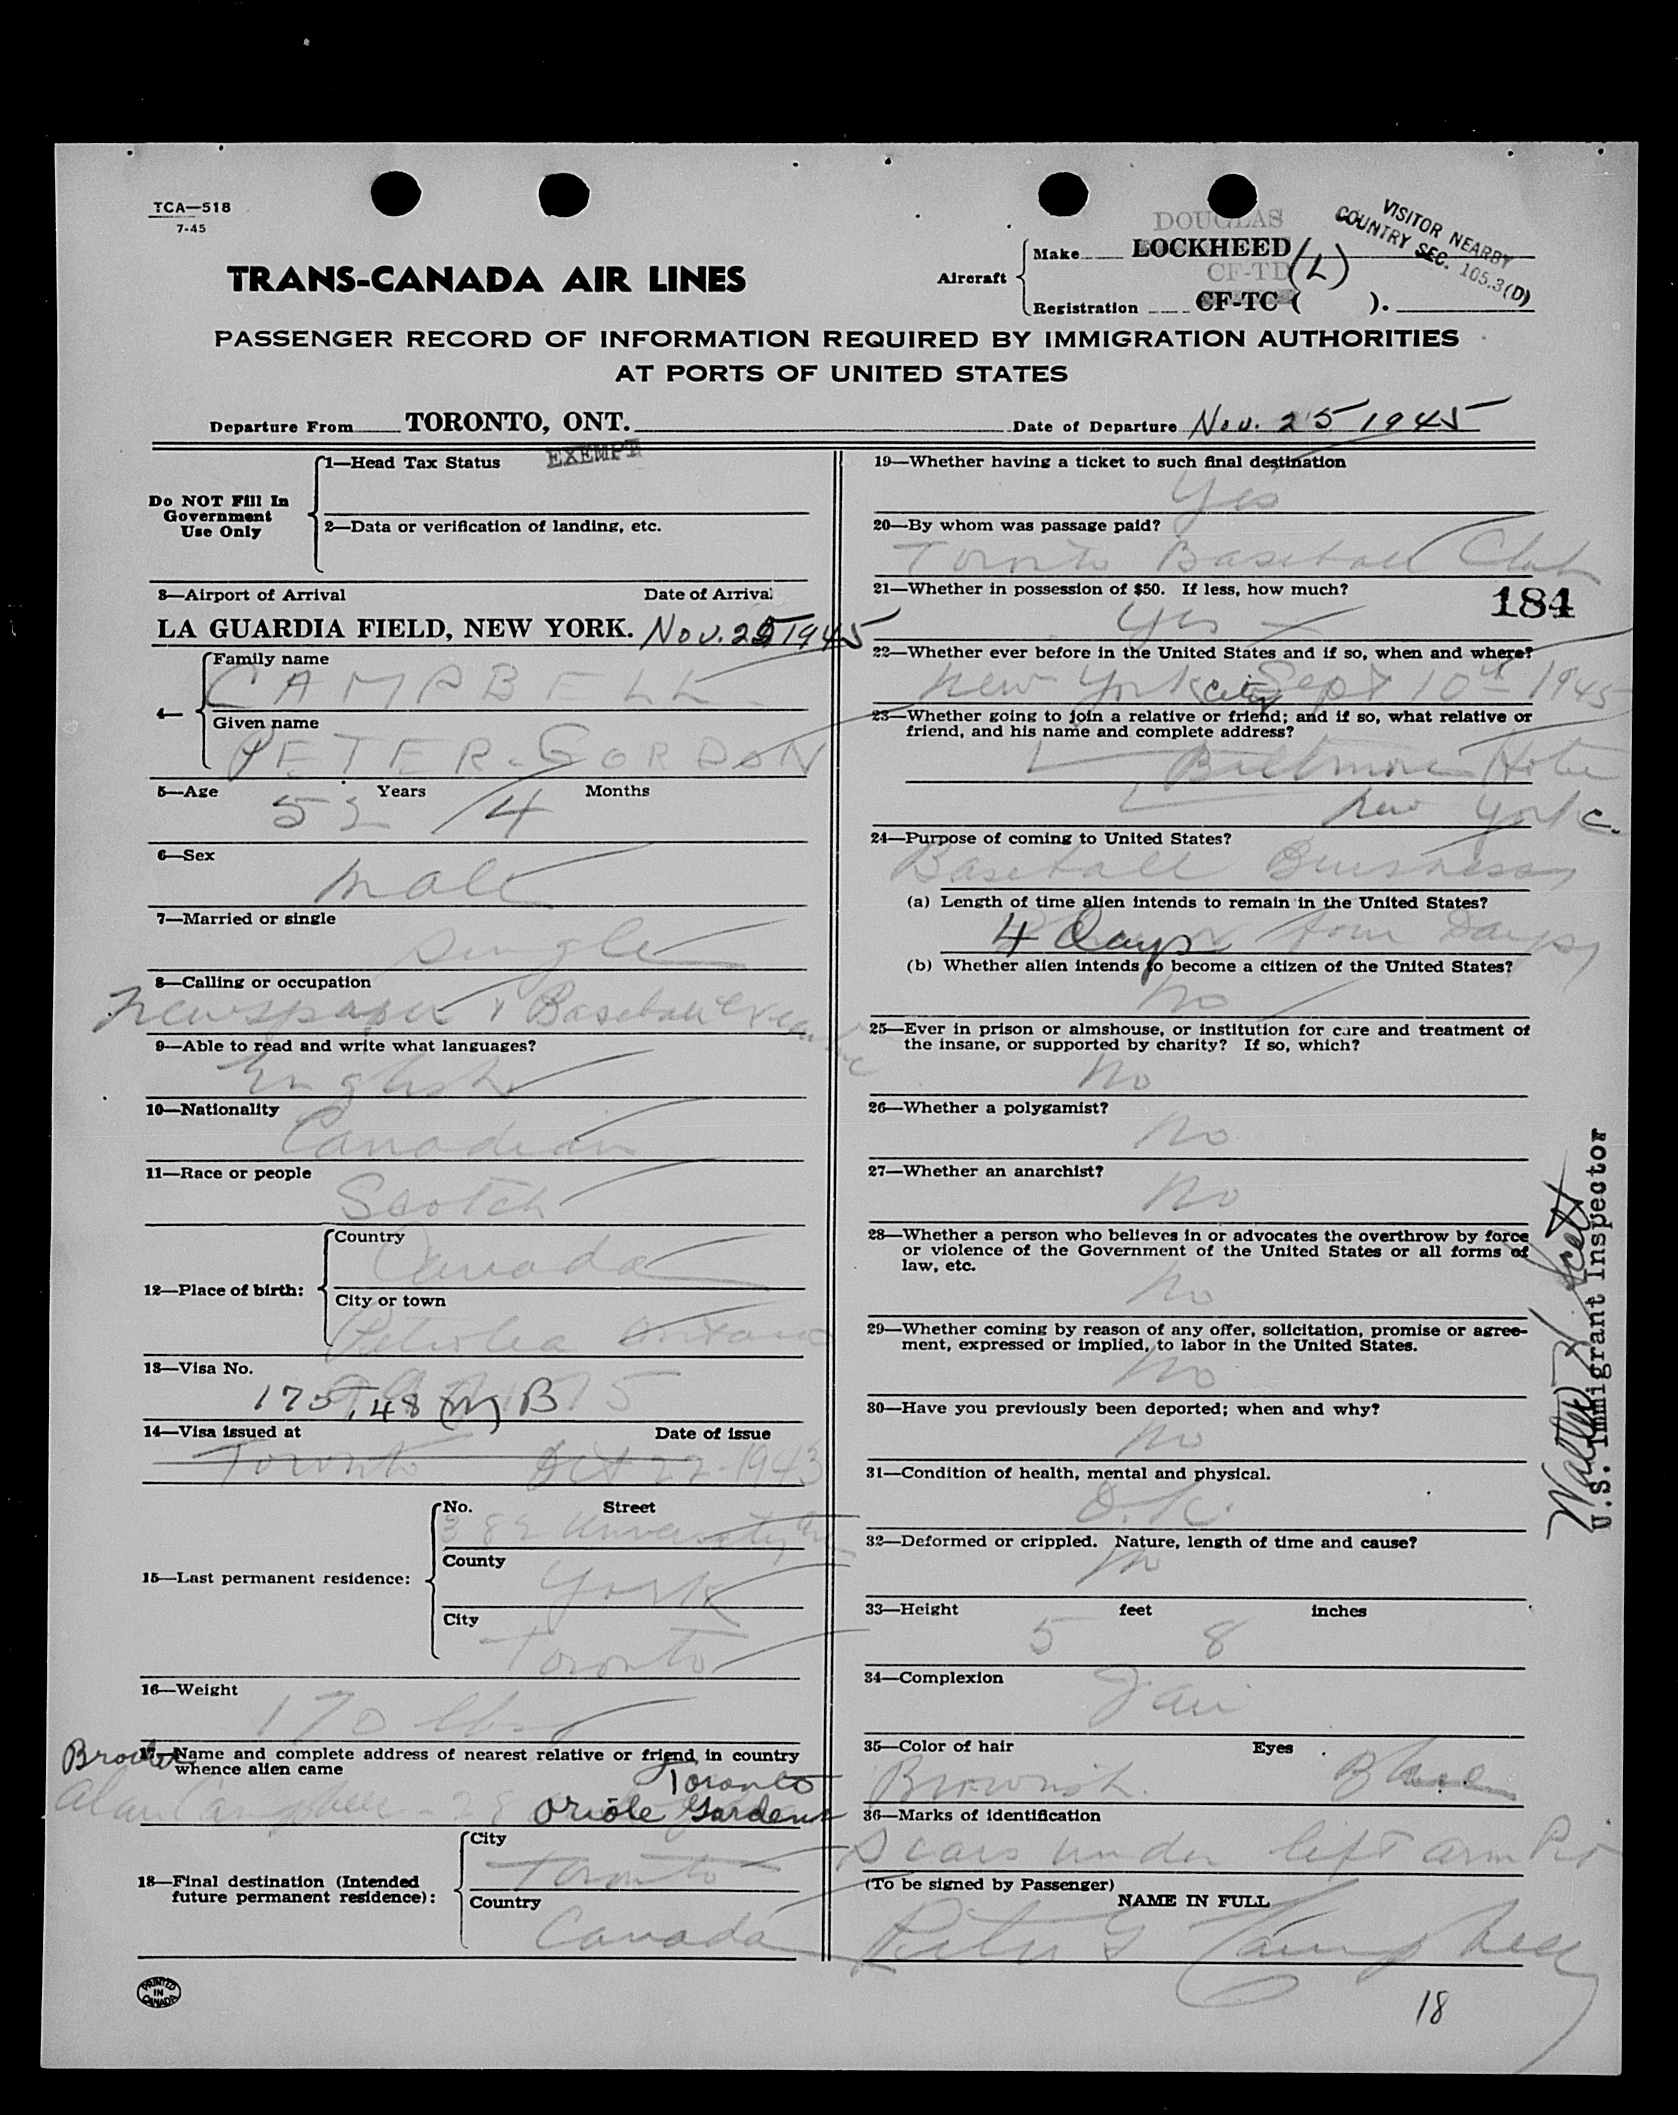 TCA—518
7-45
VISITOR NEARBY
COUNTRY SEC. 105.3(D)
DOUGLAS
Make LOCKHEED
CF-TD (L)
Aircraft
Registration CF-TC ( ).
TRANS-CANADA AIR LINES
PASSENGER RECORD OF INFORMATION REQUIRED BY IMMIGRATION AUTHORITIES
AT PORTS OF UNITED STATES
Departure From TORONTO, ONT.
Date of Departure Nov. 25 1945
Do NOT Fill In
Government
Use Only
1—Head Tax Status EXEMPT
2—Data or verification of landing, etc.
3—Airport of Arrival Date of Arrival
LA GUARDIA FIELD, NEW YORK. Nov. 25 1945
4—
Family name
CAMPBELL
Given name
PETER-GORDON
5—Age 52 Years 4 Months
6—Sex
male
7—Married or single
single
8—Calling or occupation
Newspaper & Baseball Executive
9—Able to read and write what languages?
English
10—Nationality
Canadian
11—Race or people
Scotch
12—Place of birth:
Country
Canada
City or town
Petrolea Ontario
13—Visa No.
175.48 (M) B
14—Visa issued at Date of issue
Toronto Oct 22-1943
15—Last permanent residence:
No. Street
382 University Ave
County
York
City
Toronto
16—Weight
170 lbs
17—Name and complete address of nearest relative or friend in country
whence alien came
Brother
Toronto
Alan Campbell - 28 Oriole Gardens
18—Final destination (Intended
future permanent residence):
City
Toronto
Country
Canada
PRINTED IN CANADA
19—Whether having a ticket to such final destination
Yes
20—By whom was passage paid?
Toronto Baseball Club
21—Whether in possession of $50. If less, how much?
184
Yes
22—Whether ever before in the United States and if so, when and where?
New York City Sept 10th 1945
23—Whether going to join a relative or friend; and if so, what relative or
friend, and his name and complete address?
Biltmore Hotel
New York C.
24—Purpose of coming to United States?
Baseball Business
(a) Length of time alien intends to remain in the United States?
4 Days four Days
(b) Whether alien intends to become a citizen of the United States?
No
25—Ever in prison or almshouse, or institution for care and treatment of
the insane, or supported by charity? If so, which?
No
26—Whether a polygamist?
No
27—Whether an anarchist?
No
28—Whether a person who believes in or advocates the overthrow by force
or violence of the Government of the United States or all forms of
law, etc.
No
29—Whether coming by reason of any offer, solicitation, promise or agree-
ment, expressed or implied, to labor in the United States.
No
30—Have you previously been deported; when and why?
No
31—Condition of health, mental and physical.
O.K.
32—Deformed or crippled. Nature, length of time and cause?
No
33—Height 5 feet 8 inches
34—Complexion
Fair
35—Color of hair Eyes
Brownish. Blue
36—Marks of identification
Scars under left arm Pit
(To be signed by Passenger)
NAME IN FULL
Peter G Campbell
18
U.S. Immigrant Inspector